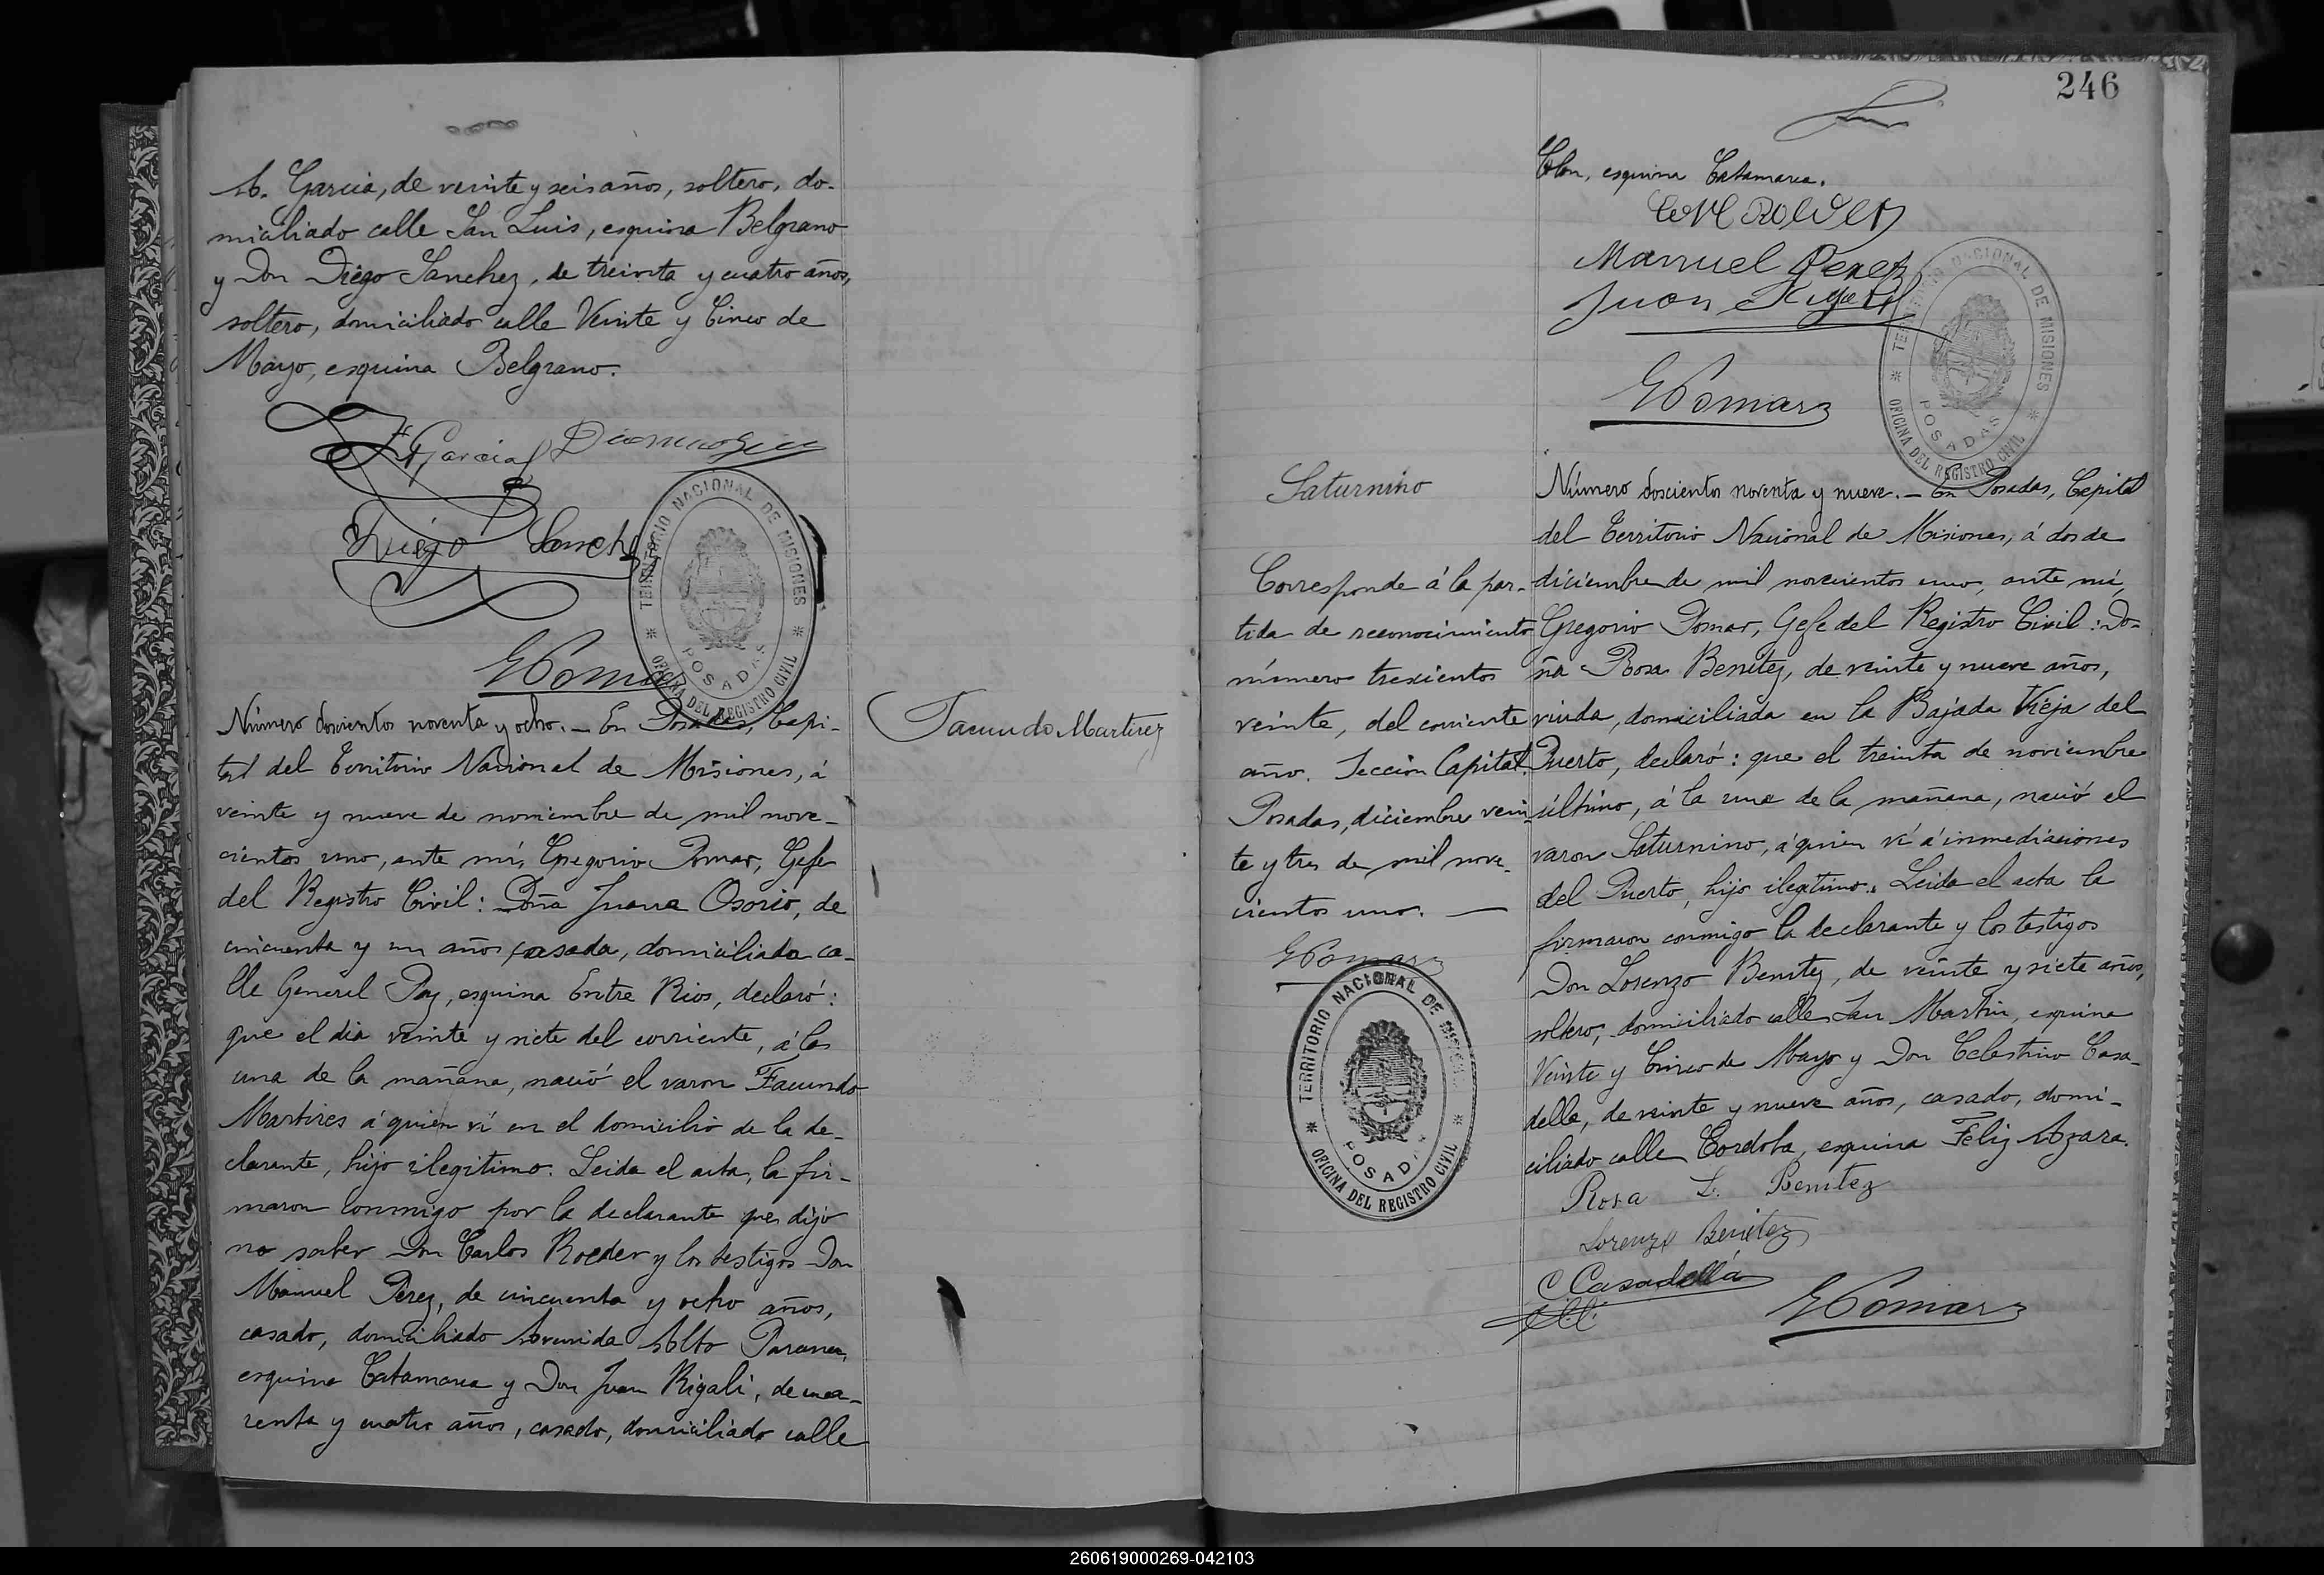 A. Garcia, de veinte y seis años, soltero, do-
miciliado calle San Luis, esquina Belgrano
y Don Diego Sanchez, de treinta y cuatro años,
soltero, domiciliado calle Veinte y Cinco de
Mayo, esquina Belgrano.
Garcia
Diego Sanchez
TERRITORIO NACIONAL DE MISIONES
POSADAS
OFICINA DEL REGISTRO CIVIL
GPomar
Número doscientos noventa y ocho. — En Posadas, Capi-
tal del Territorio Nacional de Misiones, á
veinte y nueve de noviembre de mil nove-
cientos uno, ante mí, Gregorio Pomar, Gefe
del Registro Civil: Doña Juana Osorio, de
cincuenta y un años casada, domiciliada ca-
lle General Paz, esquina Entre Rios, declaró:
que el dia veinte y siete del corriente, á la
una de la mañana, nació el varon Facundo
Martires á quien ví en el domicilio de la de-
clarante, hijo ilegitimo. Leida el acta, la fir-
maron conmigo por la declarante que dijo
no saber Don Carlos Roeder y los testigos Don
Manuel Perez, de cincuenta y ocho años,
casado, domiciliado Avenida Alto Parana,
esquina Catamarca y Don Juan Rigali, de cua-
renta y cuatro años, casado, domiciliado calle
Facundo Martirez
246
Colon, esquina Catamarca.
Manuel Perez
Juan Rigali
TERRITORIO NACIONAL DE MISIONES
POSADAS
OFICINA DEL REGISTRO CIVIL
GPomar
Saturnino
Corresponde á la par-
tida de reconocimiento
número trescientos
veinte, del corriente
año. Seccion Capital.
Posadas, diciembre vein-
te y tres de mil nove-
cientos uno. —
GPomar
TERRITORIO NACIONAL DE MISIONES
POSADAS
OFICINA DEL REGISTRO CIVIL
Número doscientos noventa y nueve. — En Posadas, Capital
del Territorio Nacional de Misiones, á dos de
diciembre de mil novecientos uno, ante mí,
Gregorio Pomar, Gefe del Registro Civil: Do-
ña Rosa Benitez, de veinte y nueve años,
viuda, domiciliada en la Bajada Vieja del
Puerto, declaró: que el treinta de noviembre
último, á la una de la mañana, nació el
varon Saturnino, á quien ví á inmediaciones
del Puerto, hijo ilegitimo. Leida el acta la
firmaron conmigo la declarante y los testigos
Don Lorenzo Benitez, de veinte y siete años,
soltero, domiciliado calle San Martin, esquina
Veinte y Cinco de Mayo y Don Celestino Casa-
della, de veinte y nueve años, casado, domi-
ciliado calle Cordoba, esquina Feliz Azara.
Rosa L. Benitez
Lorenzo Benitez
C Casadellá
GPomar
260619000269-042103